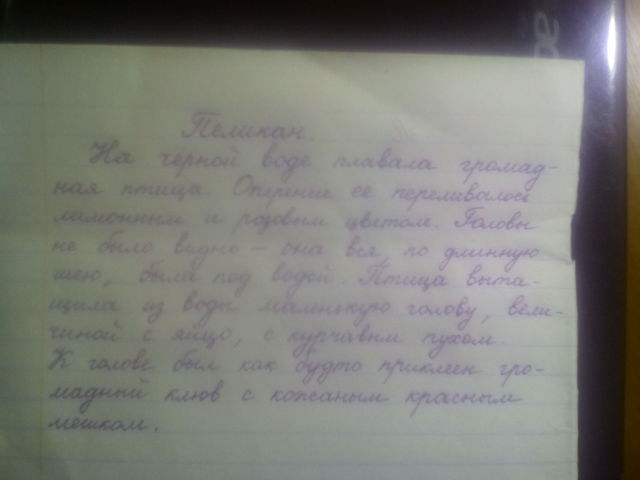 Пеликан.
На черной воде плавала громад-
ная птица. Оперение ее переливалось
лимонным и розовым цветом. Головы
не было видно – она вся, по длинную
шею, была под водой. Птица выта-
щила из воды маленькую голову, вели-
чиной с яйцо, с курчавым пухом.
К голове был как будто приклеен гро-
мадный клюв с кожаным красным
мешком.